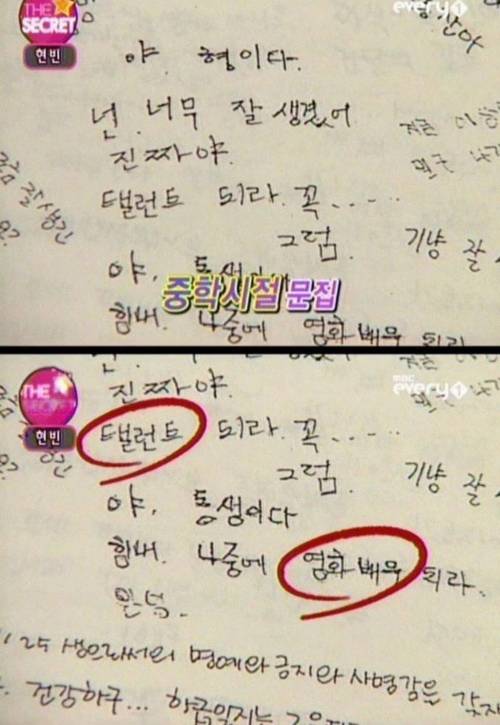 THE
SECRET
현빈
every1
야. 형이다.
넌 너무 잘 생겼어
진짜야.
탤런트 되라. 꼭.....
그럼.
기냥 잘
잘 생긴
야, 동생이다
중학시절 문집
힘내. 나중에 영화배우 되라.
THE
SECRET
현빈
mbc
every1
진짜야.
탤런트 되라. 꼭.....
그럼.
기냥 잘
야, 동생이다
힘내. 나중에 영화배우 되라.
생으로써의 명예와 긍지와 사명감을 갖자
건강하구...